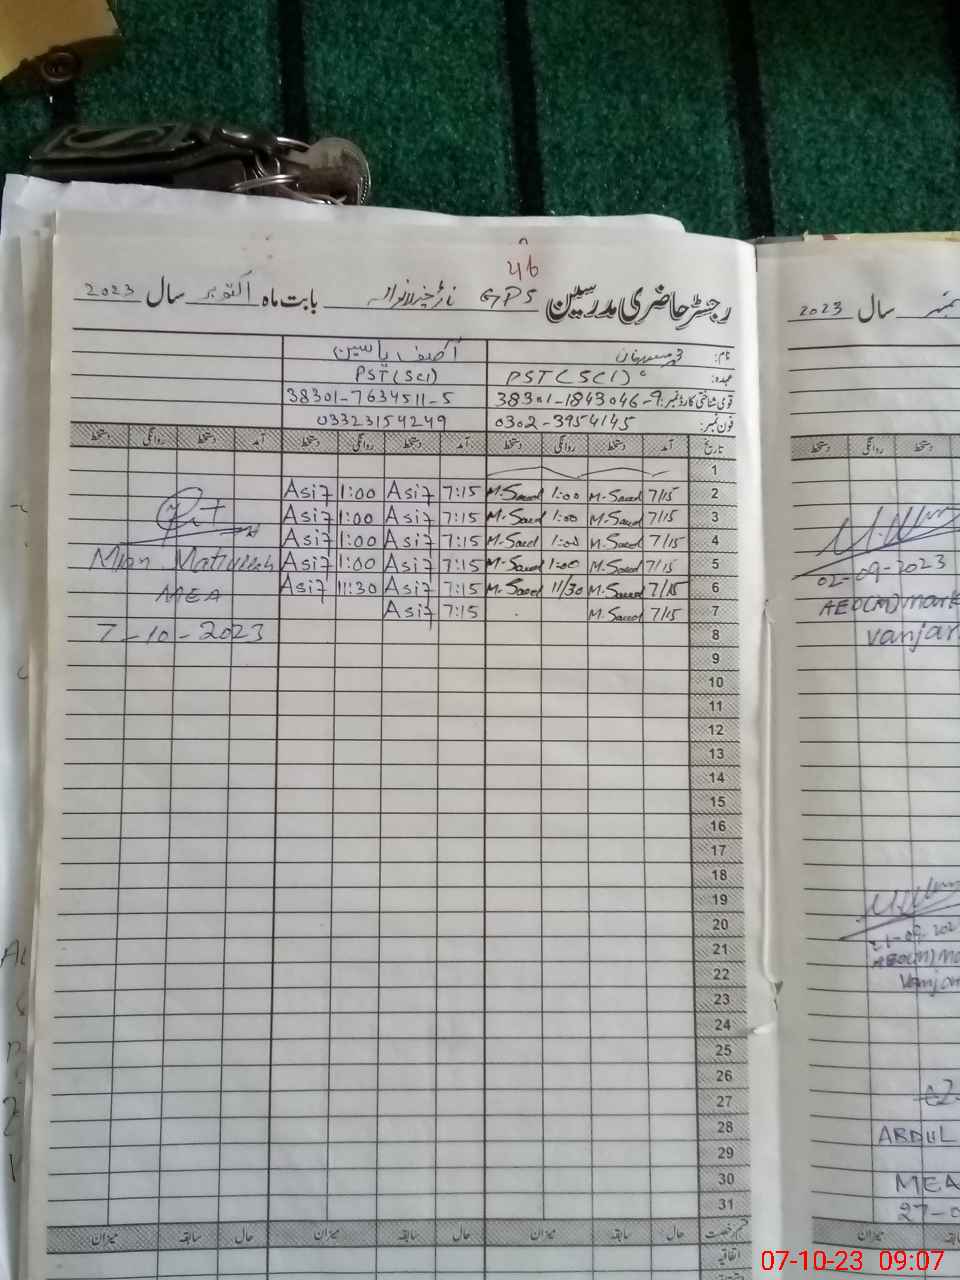 46
رجسٹر حاضری مدرسین GPS بابت ماہ اکتوبر سال 2023
نام: آصف یاسین
عہدہ: PST (SCI) PST (SCI)
قومی شناختی کارڈ نمبر: 38301-1843046-9 38301-7634511-5
فون نمبر: 0302-3954145 03323154249
تاریخ آمد دستخط روانگی دستخط آمد دستخط روانگی دستخط آمد دستخط روانگی دستخط
1
2 7/15 M.Saeed 1:00 M.Saeed 7:15 Asif 1:00 Asif
3 7/15 M.Saeed 1:00 M.Saeed 7:15 Asif 1:00 Asif
4 7/15 M.Saeed 1:00 M.Saeed 7:15 Asif 1:00 Asif
5 7/15 M.Saeed 1:00 M.Saeed 7:15 Asif 1:00 Asif
6 7/15 M.Saeed 11/30 M.Saeed 7:15 Asif 11:30 Asif
7 7/15 M.Saeed 7:15 Asif
8
9
10
11
12
13
14
15
16
17
18
19
20
21
22
23
24
25
26
27
28
29
30
31
Mian
MEA
7-10-2023
قسم رخصت حال سابقہ میزان حال سابقہ میزان حال سابقہ میزان
اتفاقیہ
سال 2023
دستخط روانگی دستخط
02-09-2023
AEO(M) Mark
Vanjar
AEO(M) Ma
Vanjar
ABDUL
MEA
27-0
میزان سابقہ
07-10-23 09:07